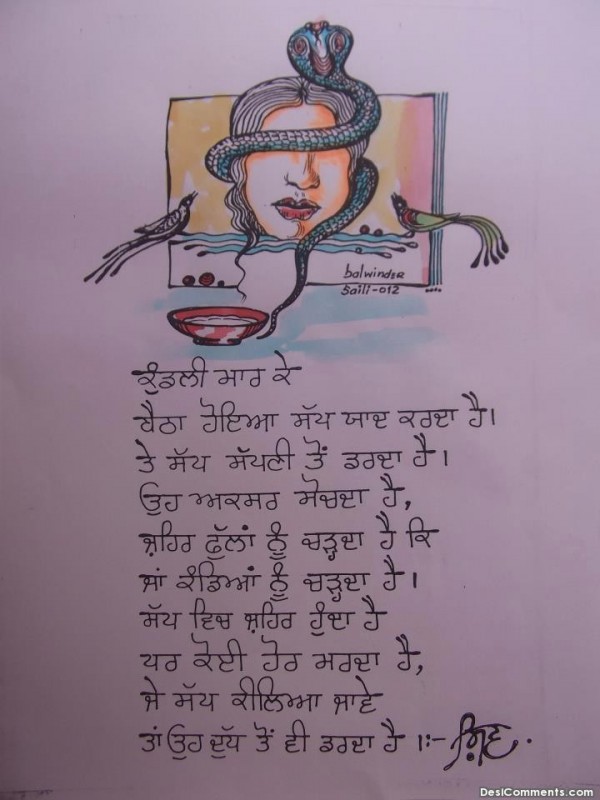 balwinder
saili-012
ਕੁੰਡਲੀ ਮਾਰ ਕੇ
ਬੈਠਾ ਹੋਇਆ ਸੱਪ ਯਾਦ ਕਰਦਾ ਹੈ।
ਤੇ ਸੱਪ ਸੱਪਣੀ ਤੋਂ ਡਰਦਾ ਹੈ।
ਉਹ ਅਕਸਰ ਸੋਚਦਾ ਹੈ,
ਜ਼ਹਿਰ ਫੁੱਲਾਂ ਨੂੰ ਚੜ੍ਹਦਾ ਹੈ ਕਿ
ਜਾਂ ਕੰਡਿਆਂ ਨੂੰ ਚੜ੍ਹਦਾ ਹੈ।
ਸੱਪ ਵਿਚ ਜ਼ਹਿਰ ਹੁੰਦਾ ਹੈ
ਪਰ ਕੋਈ ਹੋਰ ਮਰਦਾ ਹੈ,
ਜੇ ਸੱਪ ਕੀਲਿਆ ਜਾਵੇ
ਤਾਂ ਉਹ ਦੁੱਧ ਤੋਂ ਵੀ ਡਰਦਾ ਹੈ।:- ਸ਼ਿਵ.
DesiComments.com